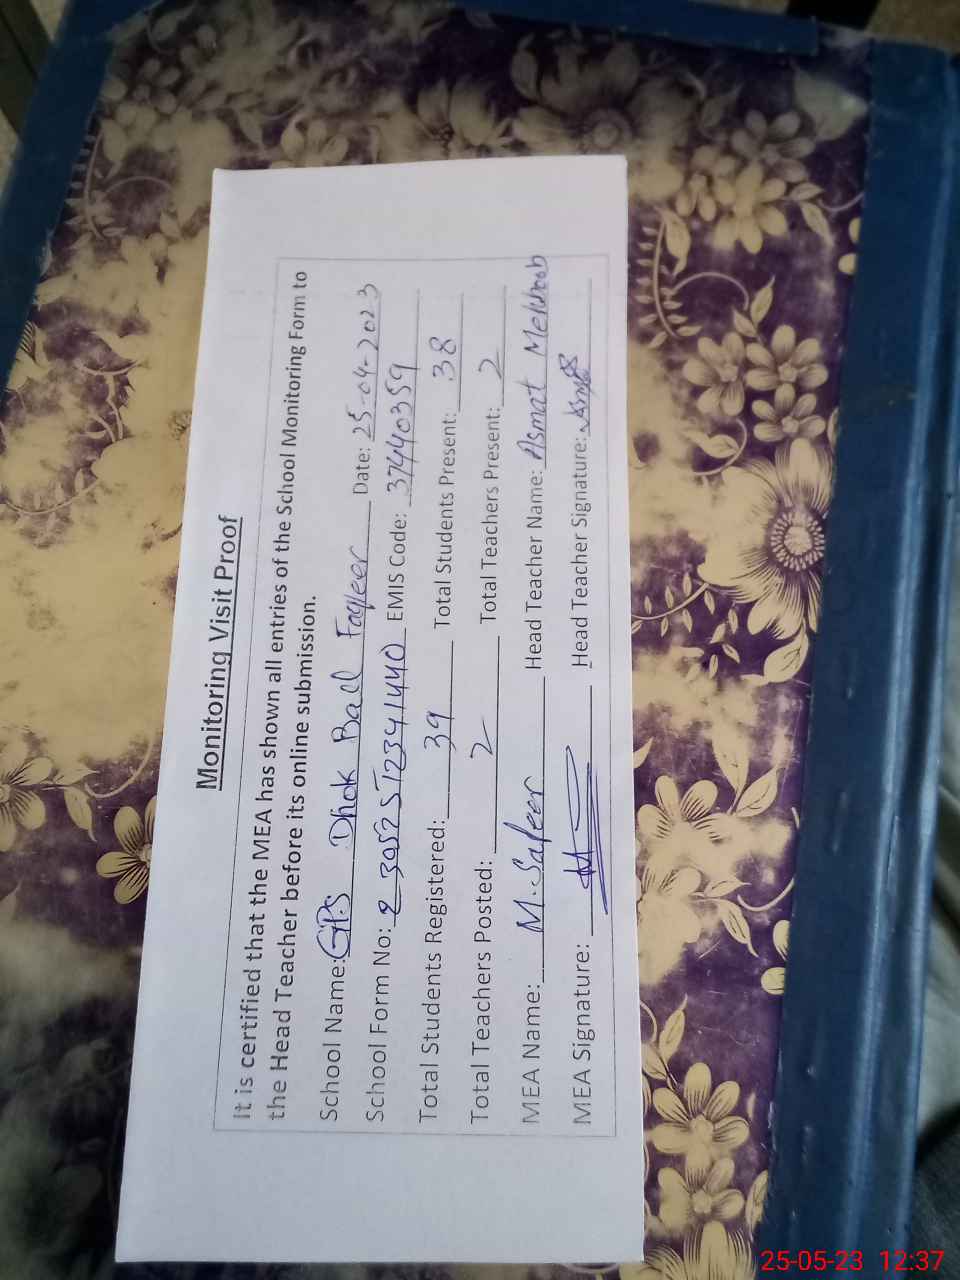 Monitoring Visit Proof
It is certified that the MEA has shown all entries of the School Monitoring Form to
the Head Teacher before its online submission.
School Name: GPS Dhok Ball Faqeer Date: 25-04-2023
School Form No: 23052512341440 EMIS Code: 37440359
Total Students Registered: 39 Total Students Present: 38
Total Teachers Posted: 2 Total Teachers Present: 2
MEA Name: M. Safeer Head Teacher Name: Asmat Mehboob
MEA Signature: Head Teacher Signature:
25-05-23 12:37